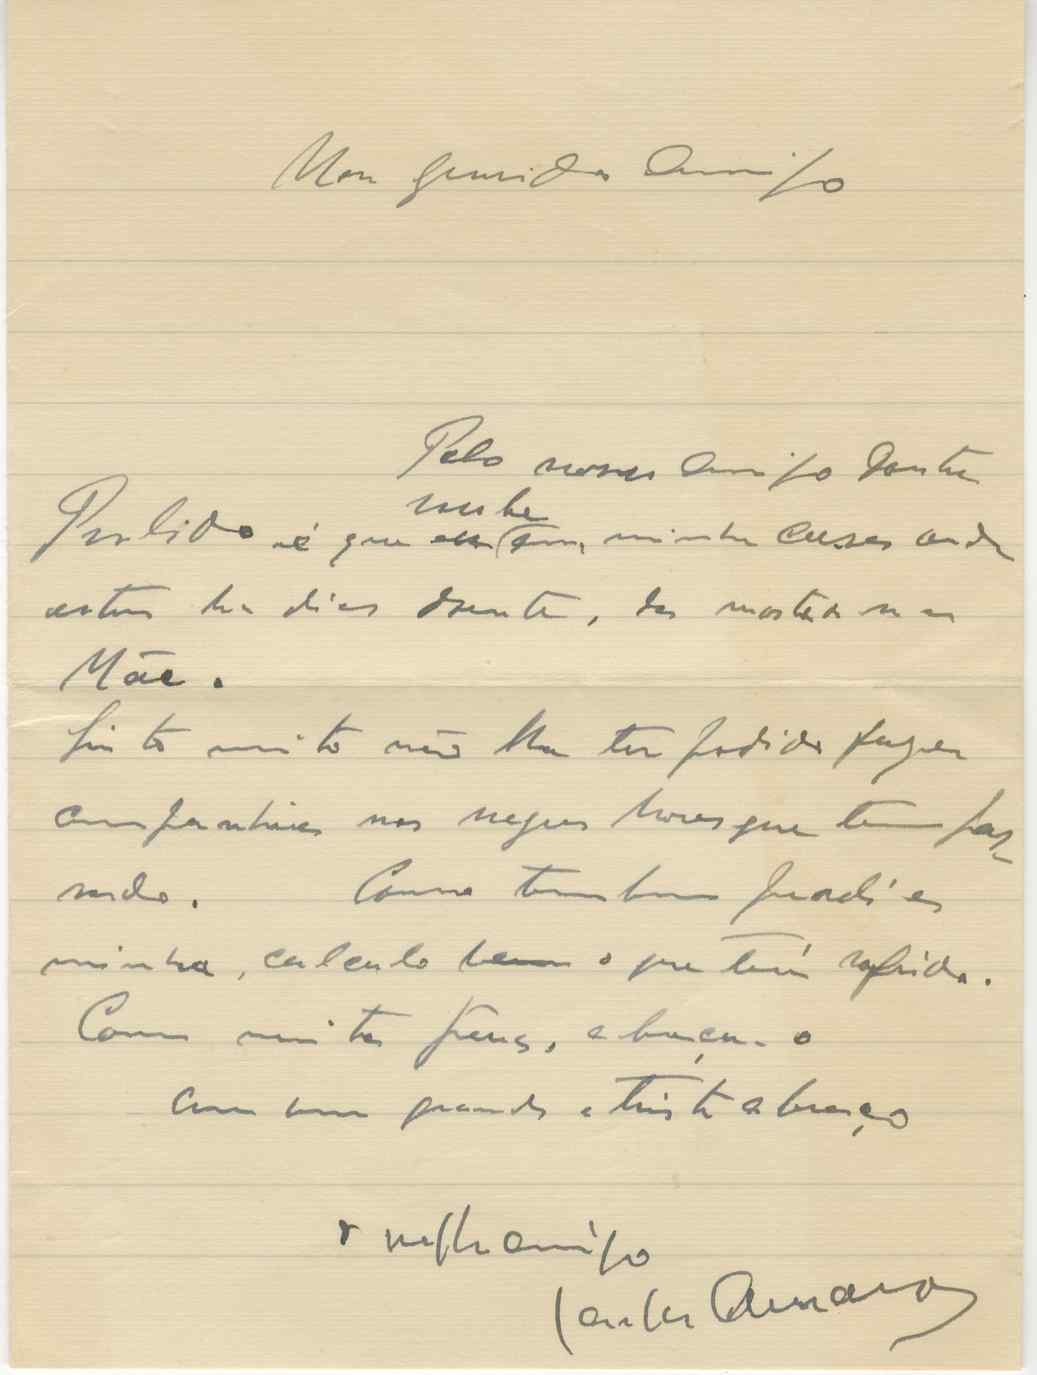 Meu querido Amigo
Pelo nosso Amigo
é que
soube
em minha casa, onde
estou ha dias doente, da morte de sua
Mãe.
Sinto muito não lhe ter podido fazer
companhia nas negras horas que tem pas-
sado. Como tambem perdi a
minha, calculo bem o que terá sofrido.
Com muita pena, abraça-o
com um grande e triste abraço
o velho amigo
Carlos Amaro